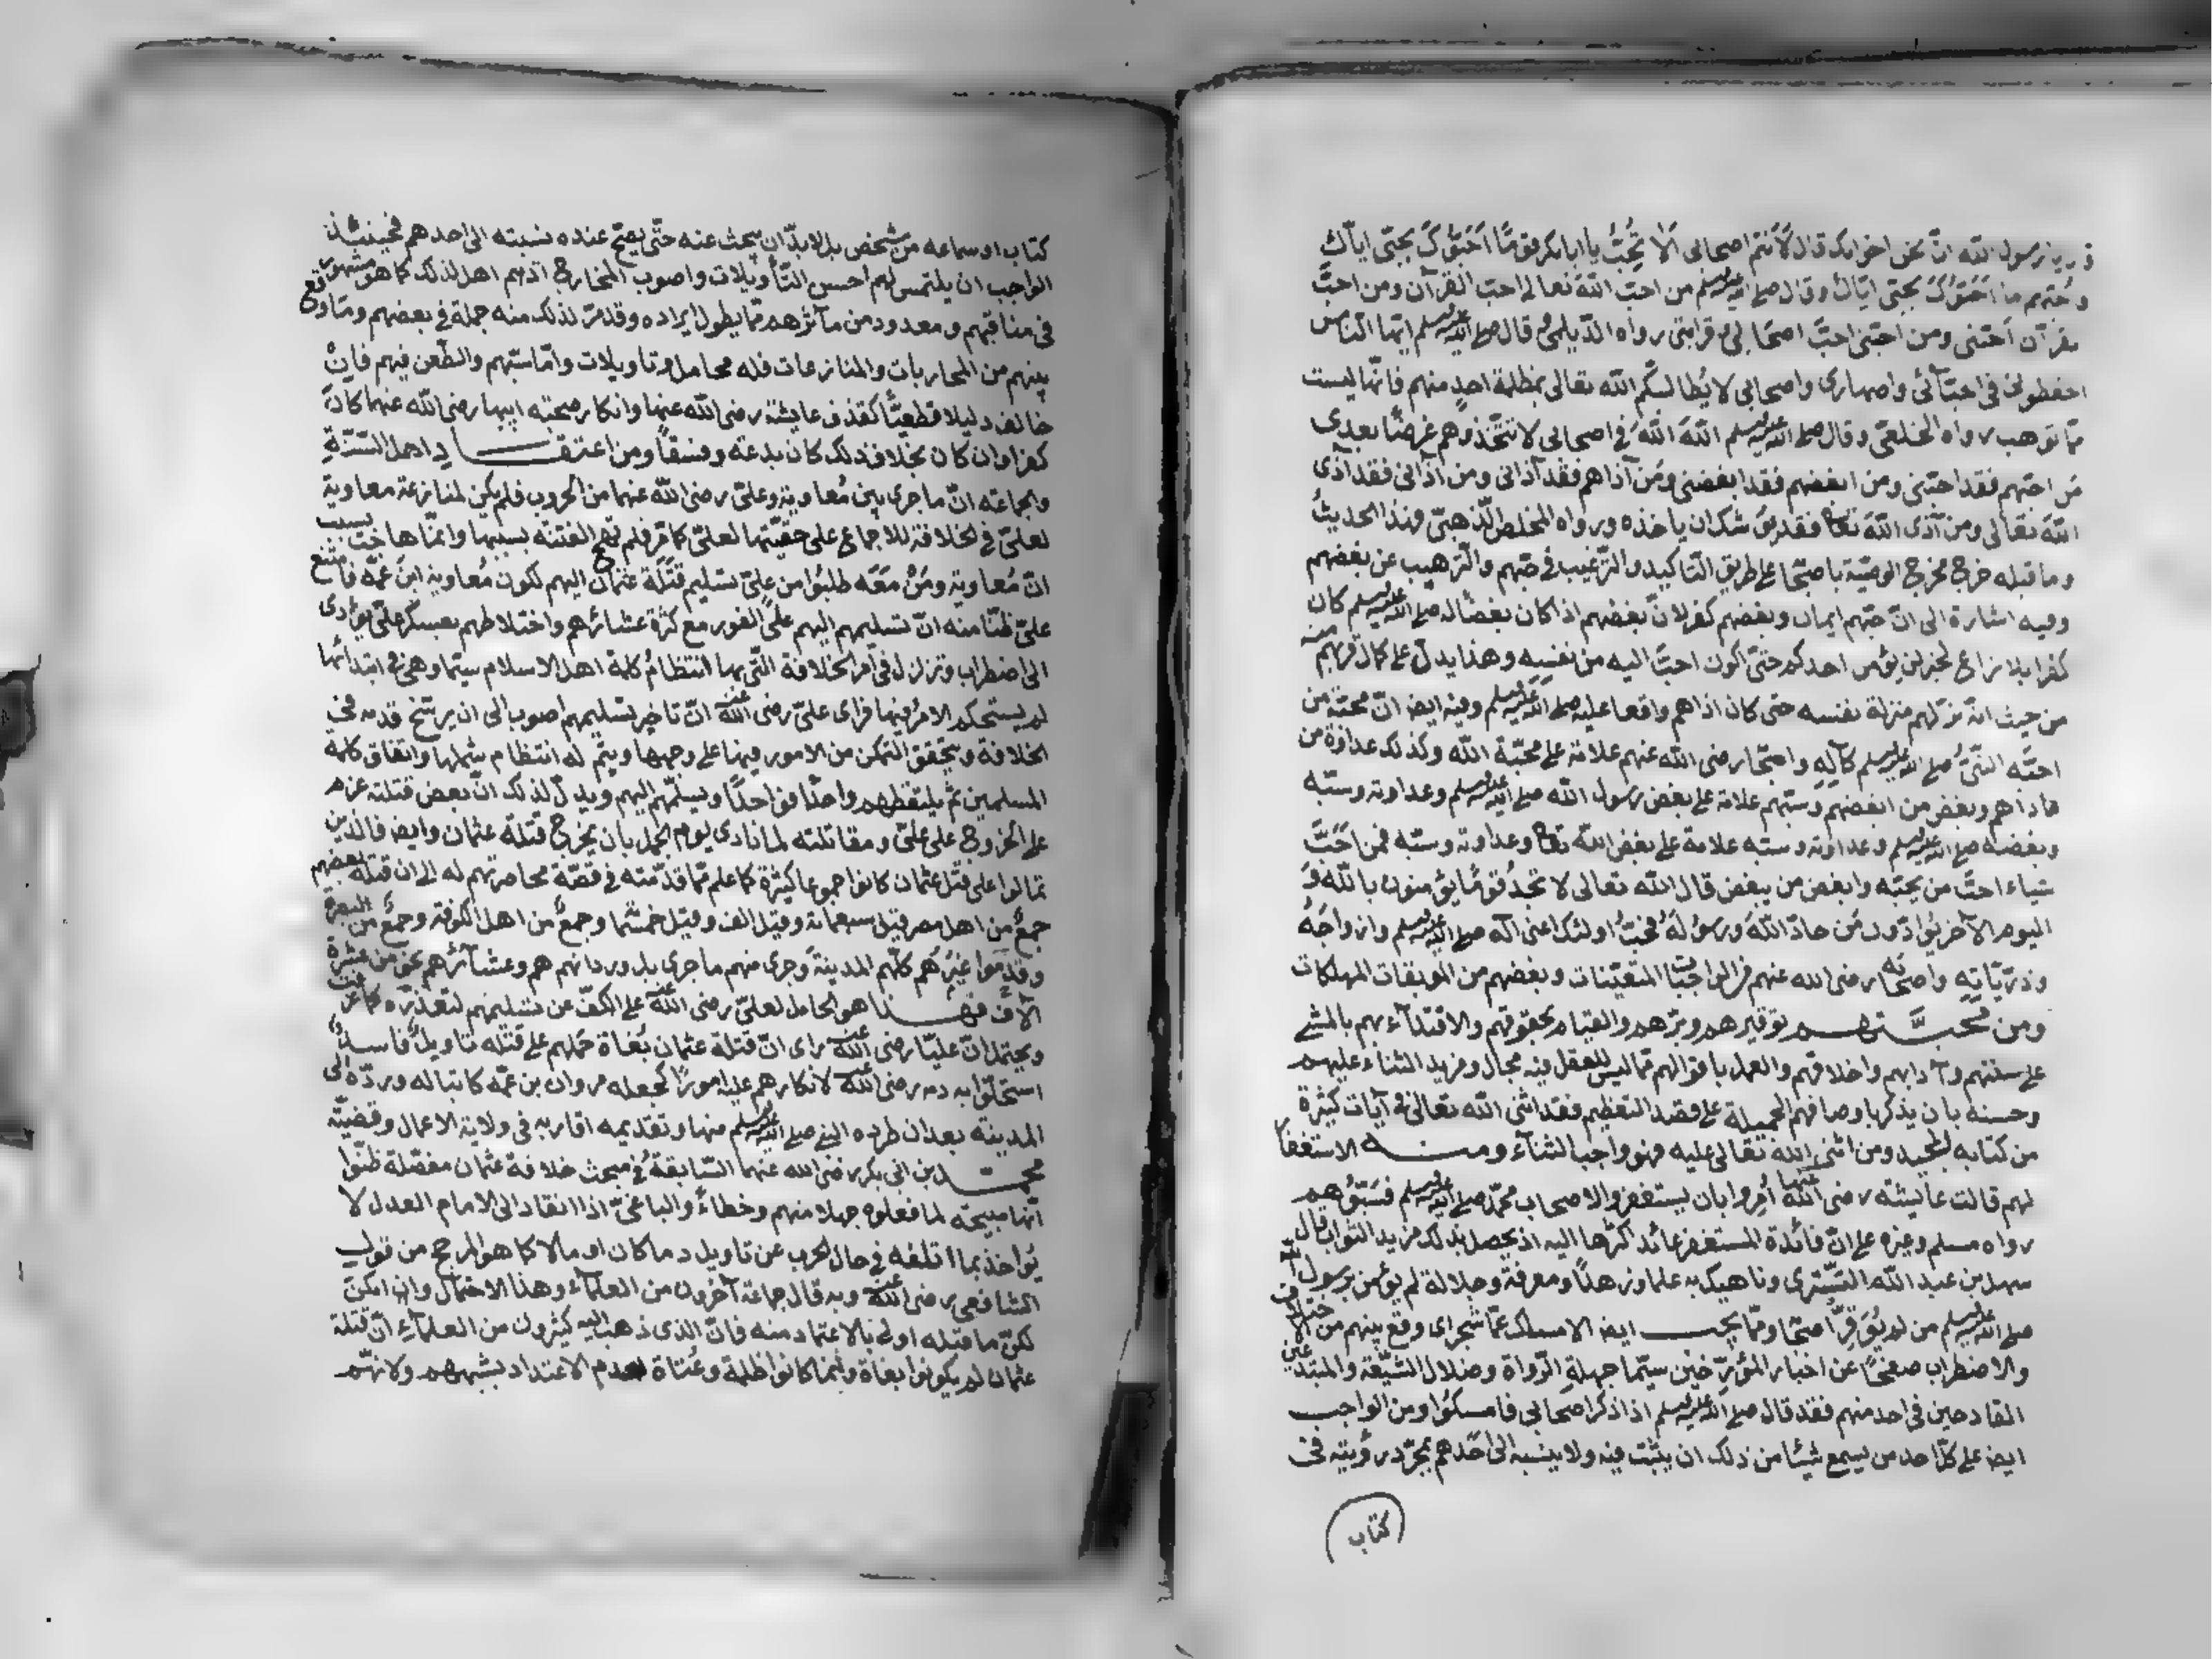 يا رسول الله انّ نحن اخوانك قال لا انتم اصحابي ألا تُحِبُّ يا ابا بكر قومًا احَبُّوكَ بحبّي ايّاك
فأحبّهم ما احَبُّوكَ بحبّي ايّاك وقال صلى الله عليه وسلم من احب الله تعالى احب القرآن ومن احبّ
القرآن احبّني ومن احبّني احبّ اصحابي وقرابتي رواه الدّيلمي وقال صلى الله عليه وسلم ايّها النّاس
احفظوني في احبّآئي واصهارى واصحابي لا يُطالبنّكم الله تعالى بمظلمة احدٍ منهم فانّها ليست
ممّا توهب رواه الخلعيّ وقال صلى الله عليه وسلم اللهَ اللهَ في اصحابي لا تتّخذوهم غرضًا بعدى
من احبّهم فقد احبّني ومن ابغضهم فقد ابغضني ومن آذاهم فقد آذاني ومن آذاني فقد آذى
الله تعالى ومن آذى الله تعالى فقد يوشك ان ياخذه ورواه المخلص الذّهبيّ فهذا الحديثُ
وما قبله خرج مخرج الوصيّة باصحابه على طريق التاكيد والترغيب في حبّهم والترهيب عن بغضهم
وفيه اشارة الى انّ حبّهم ايمان وبغضهم كفر لانّ بغضهم اذا كان بغضًا له صلى الله عليه وسلم كان
كفرا بلا نزاع لخبر لن يؤمن احدكم حتى اكون احبّ اليه من نفسِهِ وهذا يدل على كمال قربهم منه
من حيث انه نزّلهم منزلة نفسه حتى كان اذاهم واقعا عليه صلى الله عليه وسلم وفيه ايضا انّ محبّة من
احبّه النّبيُّ صلى الله عليه وسلم كآلِهِ واصحابه رضى الله عنهم علامة على محبّة الله وكذلك عداوة من
عاداهم وبغض من ابغضهم وسبّهم علامة على بغض رسول الله صلى الله عليه وسلم وعداوته وسبّه
وبغضه صلى الله عليه وسلم وعداوته وسبّه علامة على بغض الله تعالى وعداوته وسبّه فمن احَبَّ
شياء احبَّ من يحبّه وابغض من يبغض قال الله تعالى لا تجدُ قومًا يؤمنون بالله وَ
اليوم الآخر يُوادّون مَن حادّ اللهَ ورسُولَهُ فحبُّ اولئك اعنى آله صلى الله عليه وسلم وازواجَهُ
وذريّاتِهِ واصحابه رضى الله عنهم من الواجبات المتعيّنات وبغضهم من الموبقات المهلكات
ومن محبّتهم توقيرهم وبرّهم والقيام بحقوقهم والاقتدآء بهم بالمشي
على سنتهم وآدابهم واخلاقهم والعمل باقوالهم ممّا ليس للعقل فيه مجال ومزيد الثناء عليهم
وحسنه بان يذكر باوصافهم الجميلة على قصد التعظيم فقد اثنى الله تعالى في آيات كثيرة
من كتابه المجيد ومن اثنى الله تعالى عليه فهو واجب الثناء ومنه الاستغفار
لهم قالت عايشة رضى الله عنها أُمِروا بان يستغفروا لاصحاب محمد صلى الله عليه وسلم فسَبُّوهم
رواه مسلم وغيره على انّ فائدة المستغفر عائد اكثرها اليه اذ يحصل بذلك مزيد الثواب قال
سهل بن عبد الله التّستري وناهيك به علما وزهدًا ومعرفة وجلالة لم يؤمن برسول الله
صلى الله عليه وسلم من لم يُوَقِّرْ اصحابه وممّا يجب ايضا الامساك عمّا شجر اى وقع بينهم من الاختلاف
والاضطراب صفحًا عن اخبار المؤرّخين سيّما جهلة الرّواة وضلال الشّيعة والمبتدعين
القادحين في احد منهم فقد قال صلى الله عليه وسلم اذا ذكر اصحابي فامسكوا ومن الواجب
ايضا على كلّ احد من يسمع شيئا من ذلك ان يثبت فيه ولا ينسبه الى احدهم بمجرّد رؤيته في
كتاب
كتاب او سماعه من شخص بل لا بدّ ان يبحث عنه حتّى يصحّ عنده نسبته الى احدهم فحينئذ
الواجب ان يلتمس لهم احسن التّأويلات واصوب المخارج اذ هم اهل لذلك كما هو مشهور
في مناقبهم ومعدود من مآثرهم ممّا يطول ايراده وقد مرّ لذلك منه جملة في بعضهم وما وقع
بينهم من المحاربات والمنازعات فله محامل وتاويلات وامّا سبّهم والطّعن فيهم فإنْ
خالف دليلا قطعيًّا كقذف عايشة رضى الله عنها وانكار صحبته ابيها رضى الله عنهما كان
كفرا وان كان بخلاف ذلك كان بدعة وفسقًا ومن اعتقاد اهل السّنّةِ
والجماعة انّ ما جرى بين مُعاوية وعليّ رضى الله عنهما من الحروب فلم يكن لمنازعة معاوية
لعليّ في الخلافة للاجماع على حقّيّتها لعليّ كما مرّ فلم تهج الفتنة بسببها وانّما هاجت بسبب
انّ مُعاوية ومَنْ مَعَه طلبُوا من عليّ تسليم قتَلَة عثمان اليهم لكون مُعاوية ابنَ عمّه فامتنع
عليّ ظنّا منه انّ تسليمهم اليهم على الفور مع كثرة عشائرهم واختلاطهم بعسكر عليّ يؤدى
الى اضطراب وتزلزل في امر الخلافة التّي بها انتظامُ كلمة اهل الاسلام سيّما وهي في ابتدائها
لم يستحكم الامرُ فيها فراى عليّ رضى الله عنه انّ تاخير تسليمهم اصوب الى ان يرسّخ قدمه في
الخلافة ويتحقق التمكن من الامور فيها على وجهها ويتمّ له انتظام شملها واتفاق كلمة
المسلمين ثمّ يلتقطهم واحدًا فواحدًا ويسلّمهم اليهم ويدلّ لذلك انّ بعض قتلته عزم
على الخروج على عليّ ومقاتلته لما نادى يوم الجمل بان يخرج قتلة عثمان وايضا فالّذين
تمالوا على قتل عثمان كانوا جموعا كثيرة كما علم ممّا قدّمته في قصّة محاصرتهم له الى ان قتله بعضهم
جمعٌ من اهل مصر قيل سبعماة وقيل الف وقيل خمسماة وجمعٌ من اهل الكوفة وجمعٌ من البصرة
وقدموا غيرُهم كلّهم المدينة وجرى منهم ما جرى بل ورد انهم هم وعشآئرُهم نحو من عشرة
آلاف فهذا هو الحامل لعليّ رضى الله عنه على الكفّ عن تسليمهم لتعذّره كما عرفت
ويحتمل انّ عليّا رضى الله عنه راى انّ قتلة عثمان بُغاة حملهم على قتله تاويلٌ فاسدٌ
استحلّوا به دمه رضى الله عنه لانكارهم عليه امورًا كجعله مروان بن عمّه كاتبا له وردّه الى
المدينة بعد ان طرده النبي صلى الله عليه وسلم منها وتقديمه اقاربه في ولاية الاعمال وقضيّة
محمّد بن ابى بكر رضى الله عنهما السّابقةُ في مبحث خلافة عثمان مفصّلة ظنّوا
انّها مبيحة لما فعلوه جهلا منهم وخطاءً والباغيّ اذا انقاد الى الامام العدل لا
يُواخذ بما اتلفه في حال الحرب عن تاويل دما كان او مالا كما هو المرجح من قول
الشافعي رضى الله عنه وبه قال جماعة آخرون من العلمآء وهذا الاحتمال وان امكن
لكنّ ما قبله اولى بالاعتماد منه فانّ الذى ذهب اليه كثيرون من العلمآءِ انّ قتلة
عثمان لم يكونوا بغاة وانما كانوا ظلمة وعُتاة لعدم الاعتداد بشبههم ولانّهم